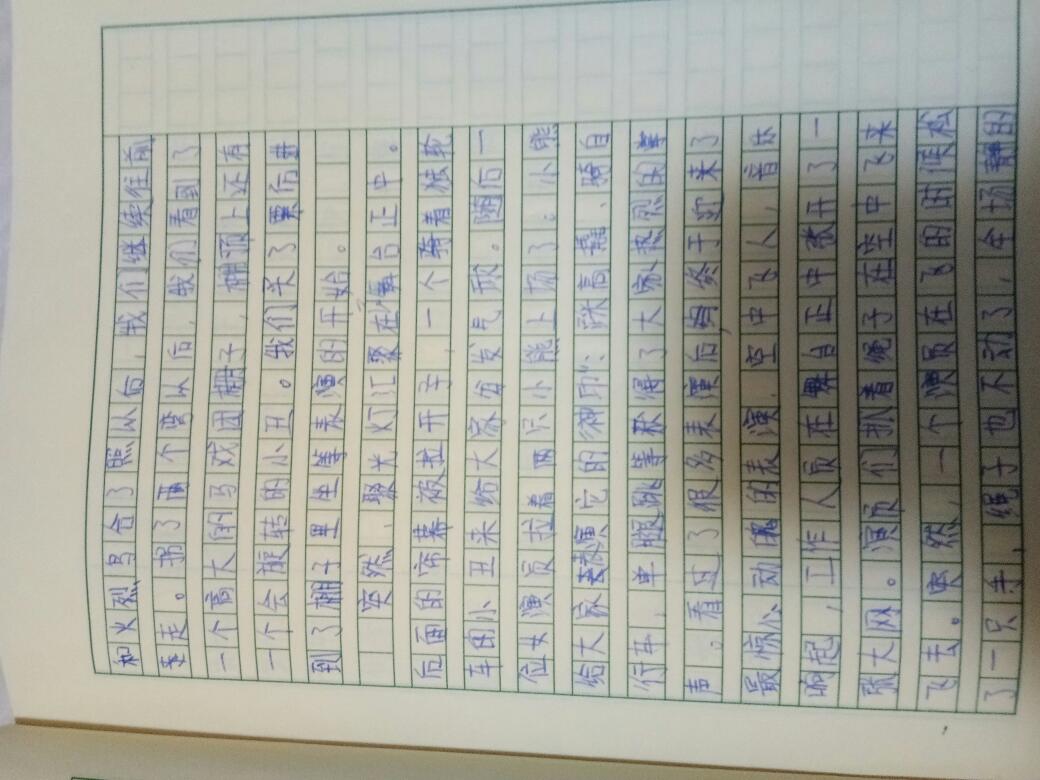 和火烈鸟合了照以后，我们继续往前
走走。拐了两个弯以后，我们看到了
一个高大的马戏团棚子，棚顶上还有
一个会旋转的小丑。我们买了票后毋
到了棚子里坐等表演的开始。
突然，聚光灯汇聚在舞台正中。
后面的帘幕被拉开了，一个骑着独轮
车的小丑来给大家分发气球。随后一
位女演员拉着两只小熊上场了：小熊
给大家表演它的绝功：滚高跷、骑自
行车，车腿跳等获得了大家热烈的掌
声。看过了很多表演后终于到来了
最惊心动魄的表演，空中飞人，音乐
响起，工作人员在舞台正中张开了一
张大网。演员们扒着绳子在空中飞来
飞去。突然，一个演员在飞的时候松
了一只手，绳子也不动了，全场都的